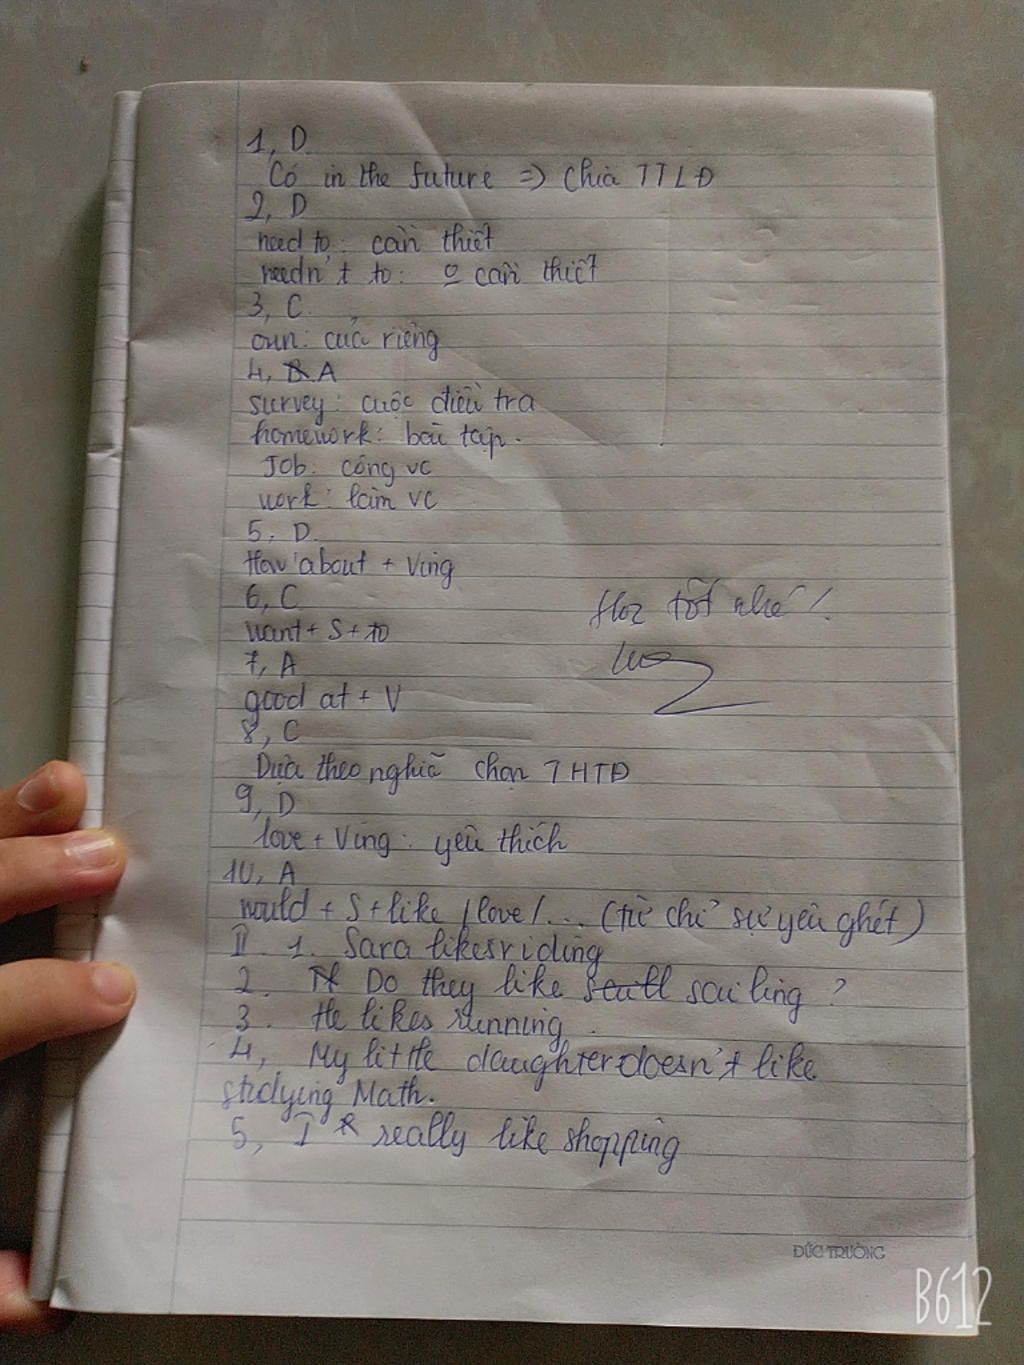 1, D.
Có in the future => Chia TTLĐ
2, D
need to: cần thiết
needn't to: o cần thiết
3, C.
own: của riêng
4, A
survey: cuộc điều tra
homework: bài tập.
Job: công vc
work: làm vc
5, D.
How about + Ving
6, C
want + S + to
Học tốt nhé!
7, A
good at + V
8, C
Dựa theo nghĩa chọn THTĐ
9, D
love + Ving: yêu thích
10, A
would + S + like / love /... (từ chỉ sự yêu ghét)
II. 1. Sara likes riding
2. Do they like sailing ?
3. He likes running.
4, My little daughter doesn't like
studying Math.
5, I really like shopping
ĐỨC TRƯỜNG
B612